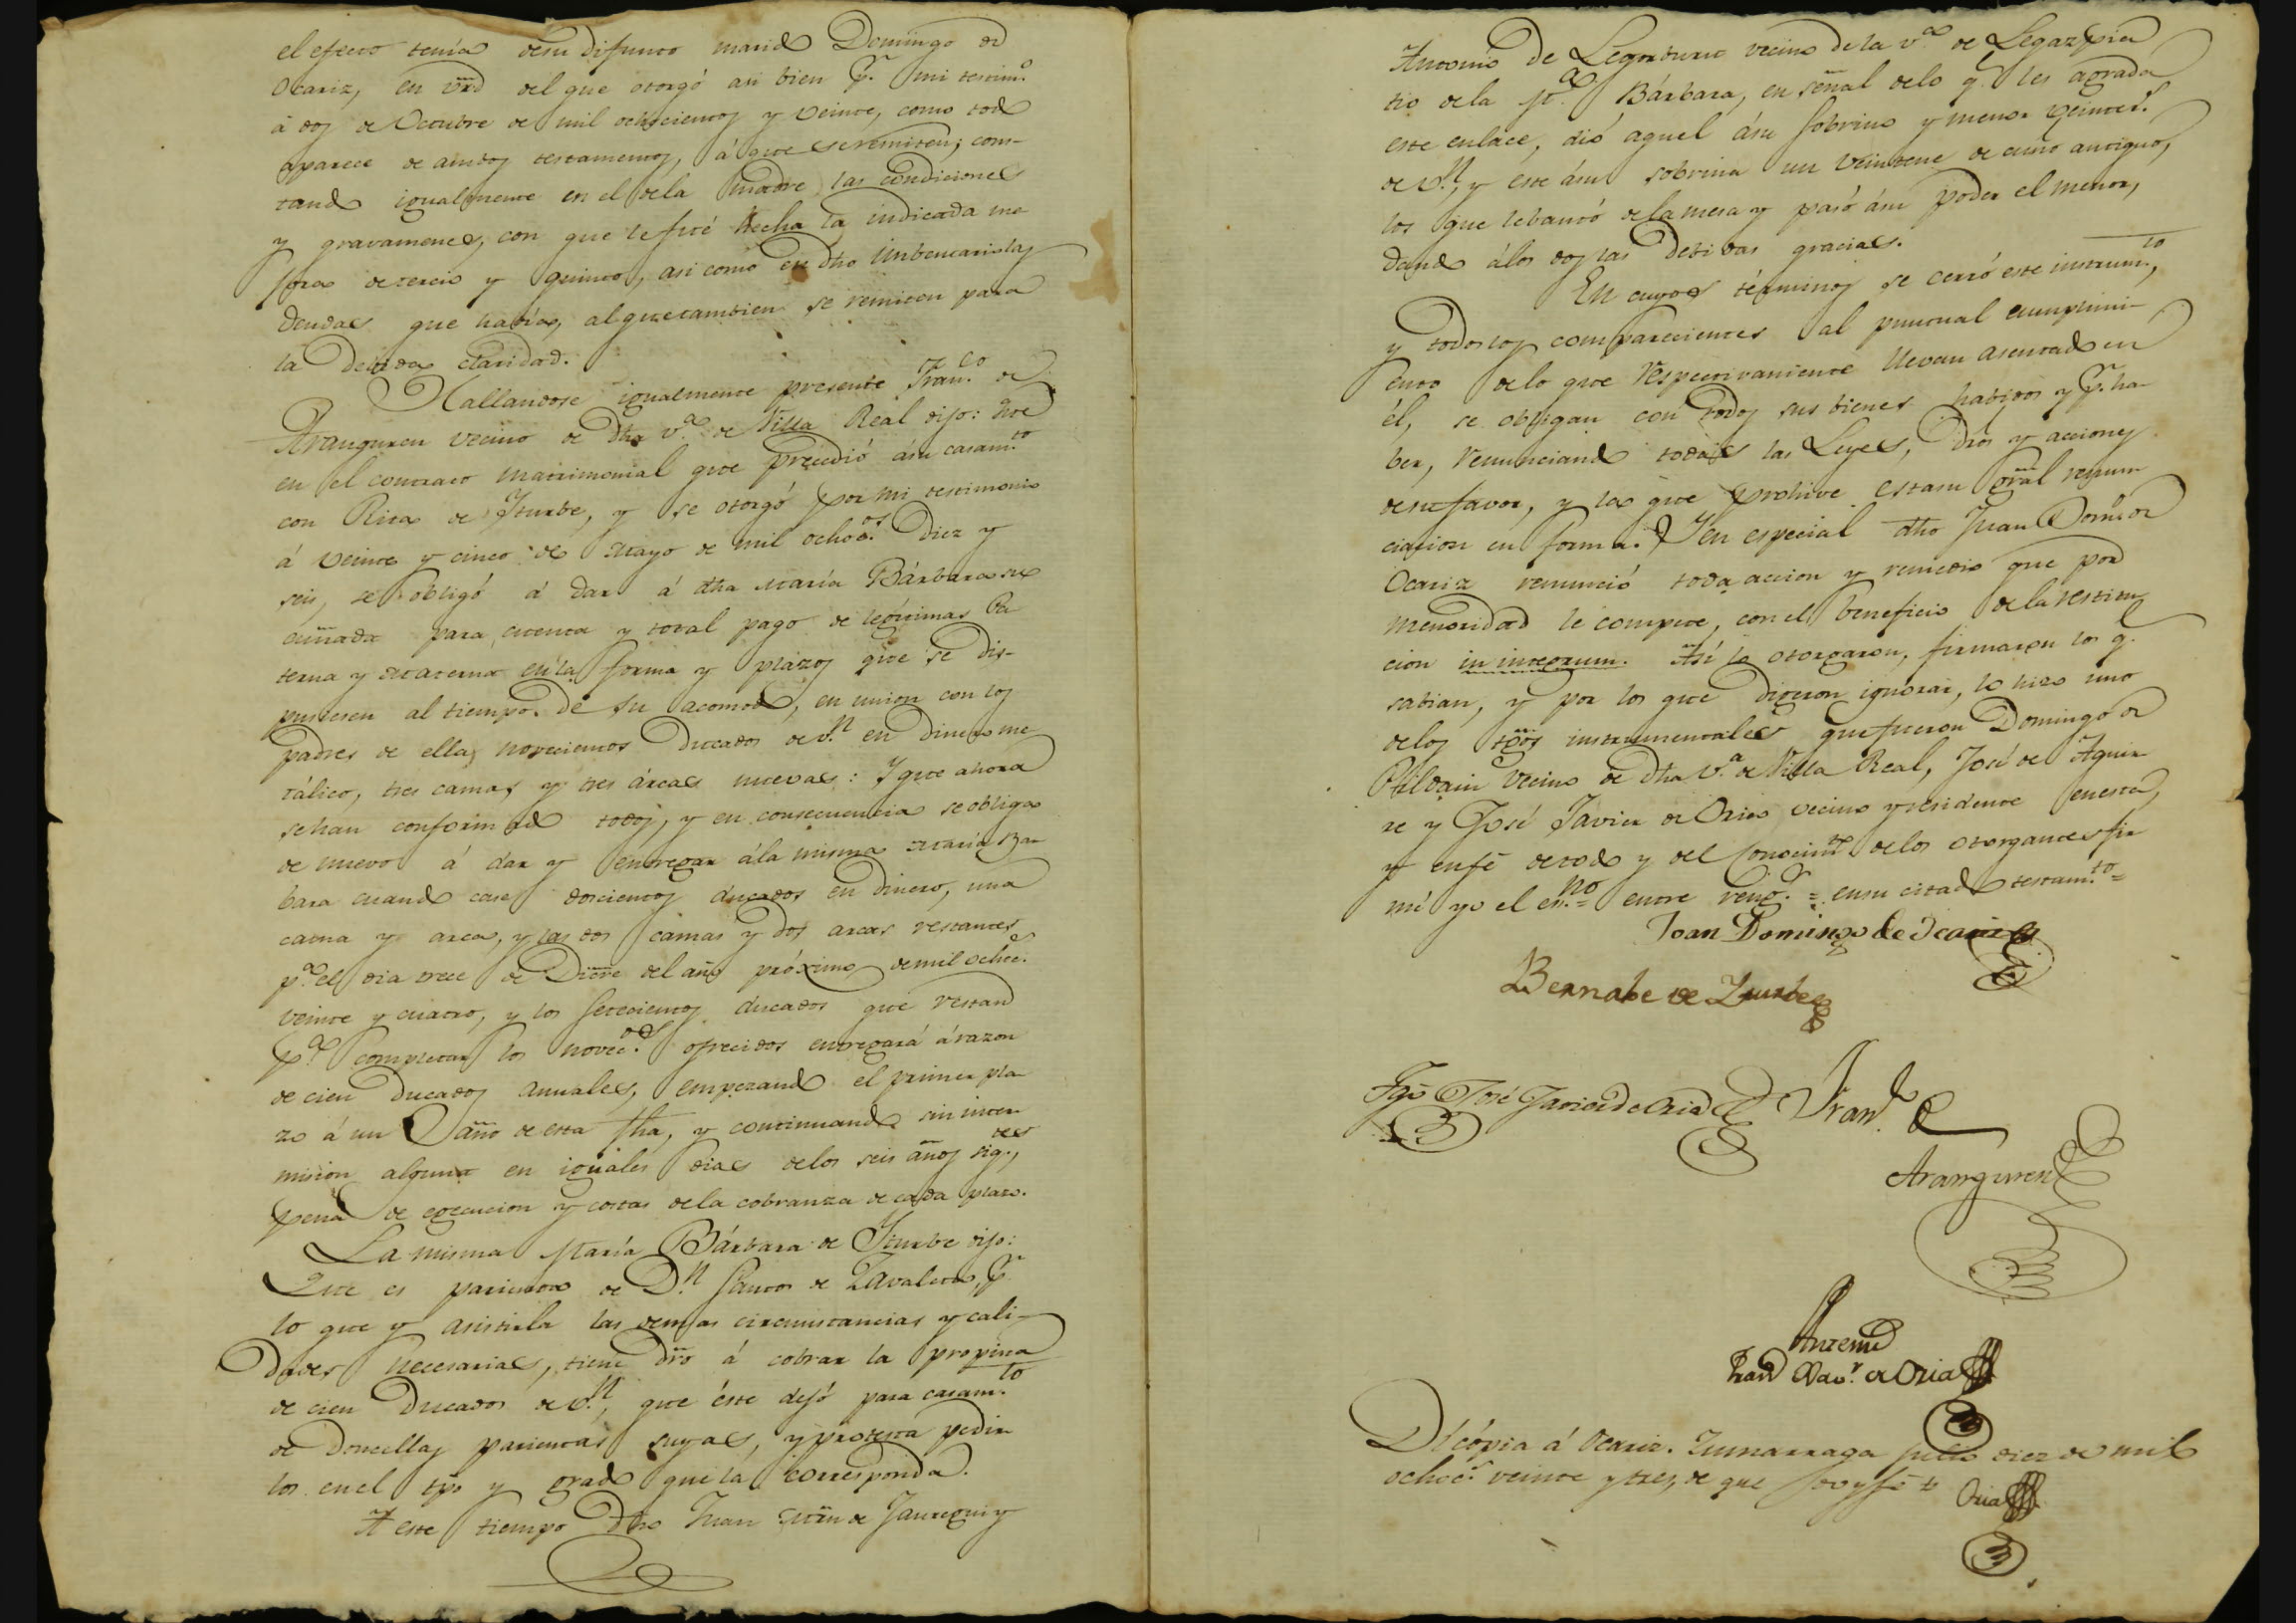 el efecto tenía de su difunto marido Domingo de
Ocariz, en vrd del que otorgó asi bien pr. mi testimo.
á dos de Octubre de mil ochocientos y veinte, como todo
aparece de ambos testamentos, á que se remiten; cons-
tando igualmente en el de la Madre las condiciones
y gravamenes, con que le fué hecha la indicada me
jora de tercio y quinto, asi como en dho Imbentario las
deudas que habia, al que tambien se remiten para
la debida claridad.
Hallandose igualmente presente Franco. de
Aranguren vecino de dha va. de Villa Real dijo: Que
en el contrato matrimonial que precedió á su casamto.
con Rita de Yturbe, y se otorgó por mi testimonio
á veinte y cinco de Mayo de mil ochocos. diez y
seis, se obligó á dar á dha María Bárbara su
cuñada para cuenta y total pago de legitimas Pa
terna y Materna en la forma y plazos que se dis-
pusiesen al tiempo de su acomodo, en union con los
padres de ella, novecientos ducados de vn. en dinero me
tálico, tres camas y tres árcas nuevas: Y que ahora
se han conformado todos, y en consecuencia se obliga
de nuevo á dar y entregar á la misma María Bar
bara cuando case doscientos ducados en dinero, una
cama y arca, y las dos camas y dos arcas restantes
pa. el dia trece de Dicre del año próximo de mil ochoc.
veinte y cuatro, y los setecientos ducados que restan
pa. completar los novecos. ofrecidos entregará á razon
de cien ducados annuales, empezando el primer pla
zo á un año de esta fha, y continuando sin inter
mision alguna en iguales dias de los seis años sigtes,
pena de egecucion y costas de la cobranza de cada plazo.
La misma María Bárbara de Yturbe dijo:
Que es parienta de Dn. Santos de Zavaleta, pr.
lo que y asistirla las demas circunstancias y cali-
dades necesarias, tiene dro á cobrar la propina
de cien Ducados de vn., que éste dejó para casamto.
de doncellas parientas suyas, y protesta pedir
los en el tpo y grado que la corresponda.
A este tiempo dho Juan Mrn de Jauregui y
Antonio de Legorburu vecino de la va. de Legazpia
tio de la Ma. Bárbara, en señal de lo q. les agrada
este enlace, dió aquel á su sobrino y menor veinte rs.
de vn., y este á su sobrina un veinteno de cuño antiguo,
los que lebantó de la mesa y pasó á su poder el menor,
dando á los dos las debidas gracias.
En cuyos términos se cerró este instrumto,
y todos los comparecientes al puntual cumplimi-
ento de lo que respectivamente llevan asentado en
él, se obligan con todos sus bienes habidos y pr. ha-
ber, renunciando todas las Leyes, dros y acciones
de su favor, y la que prohive esta su gral renun
ciacion en forma. Y en especial dho Juan Domo. de
Ocariz renunció toda accion y remedio que por
menoridad le compete, con el beneficio de la restitu
cion in integrum. Así lo otorgaron, firmaron los q.
sabian, y por los que digeron ignorar, lo hizo uno
de los tgos instrumentales que fueron Domingo de
Vildain vecino de dha va. de Villa Real, José de Aguir
re y José Javier de Oria vecino y residente en esta,
y en fé de todo y del conocimto de los otorgantes fir
mé yo el esno. = entre reng. = en su citado testamto. =
Joan Domingo de Ocariz
Bernabe de Yturbe
Tgo José Javier de Oria
Fran. de
Aranguren
Antemi
Fran Xavr. de Oria
Dí cópia á Ocariz. Zumarraga Julio diez de mil
ochocs. veinte y tres, de que doy fé
Oria